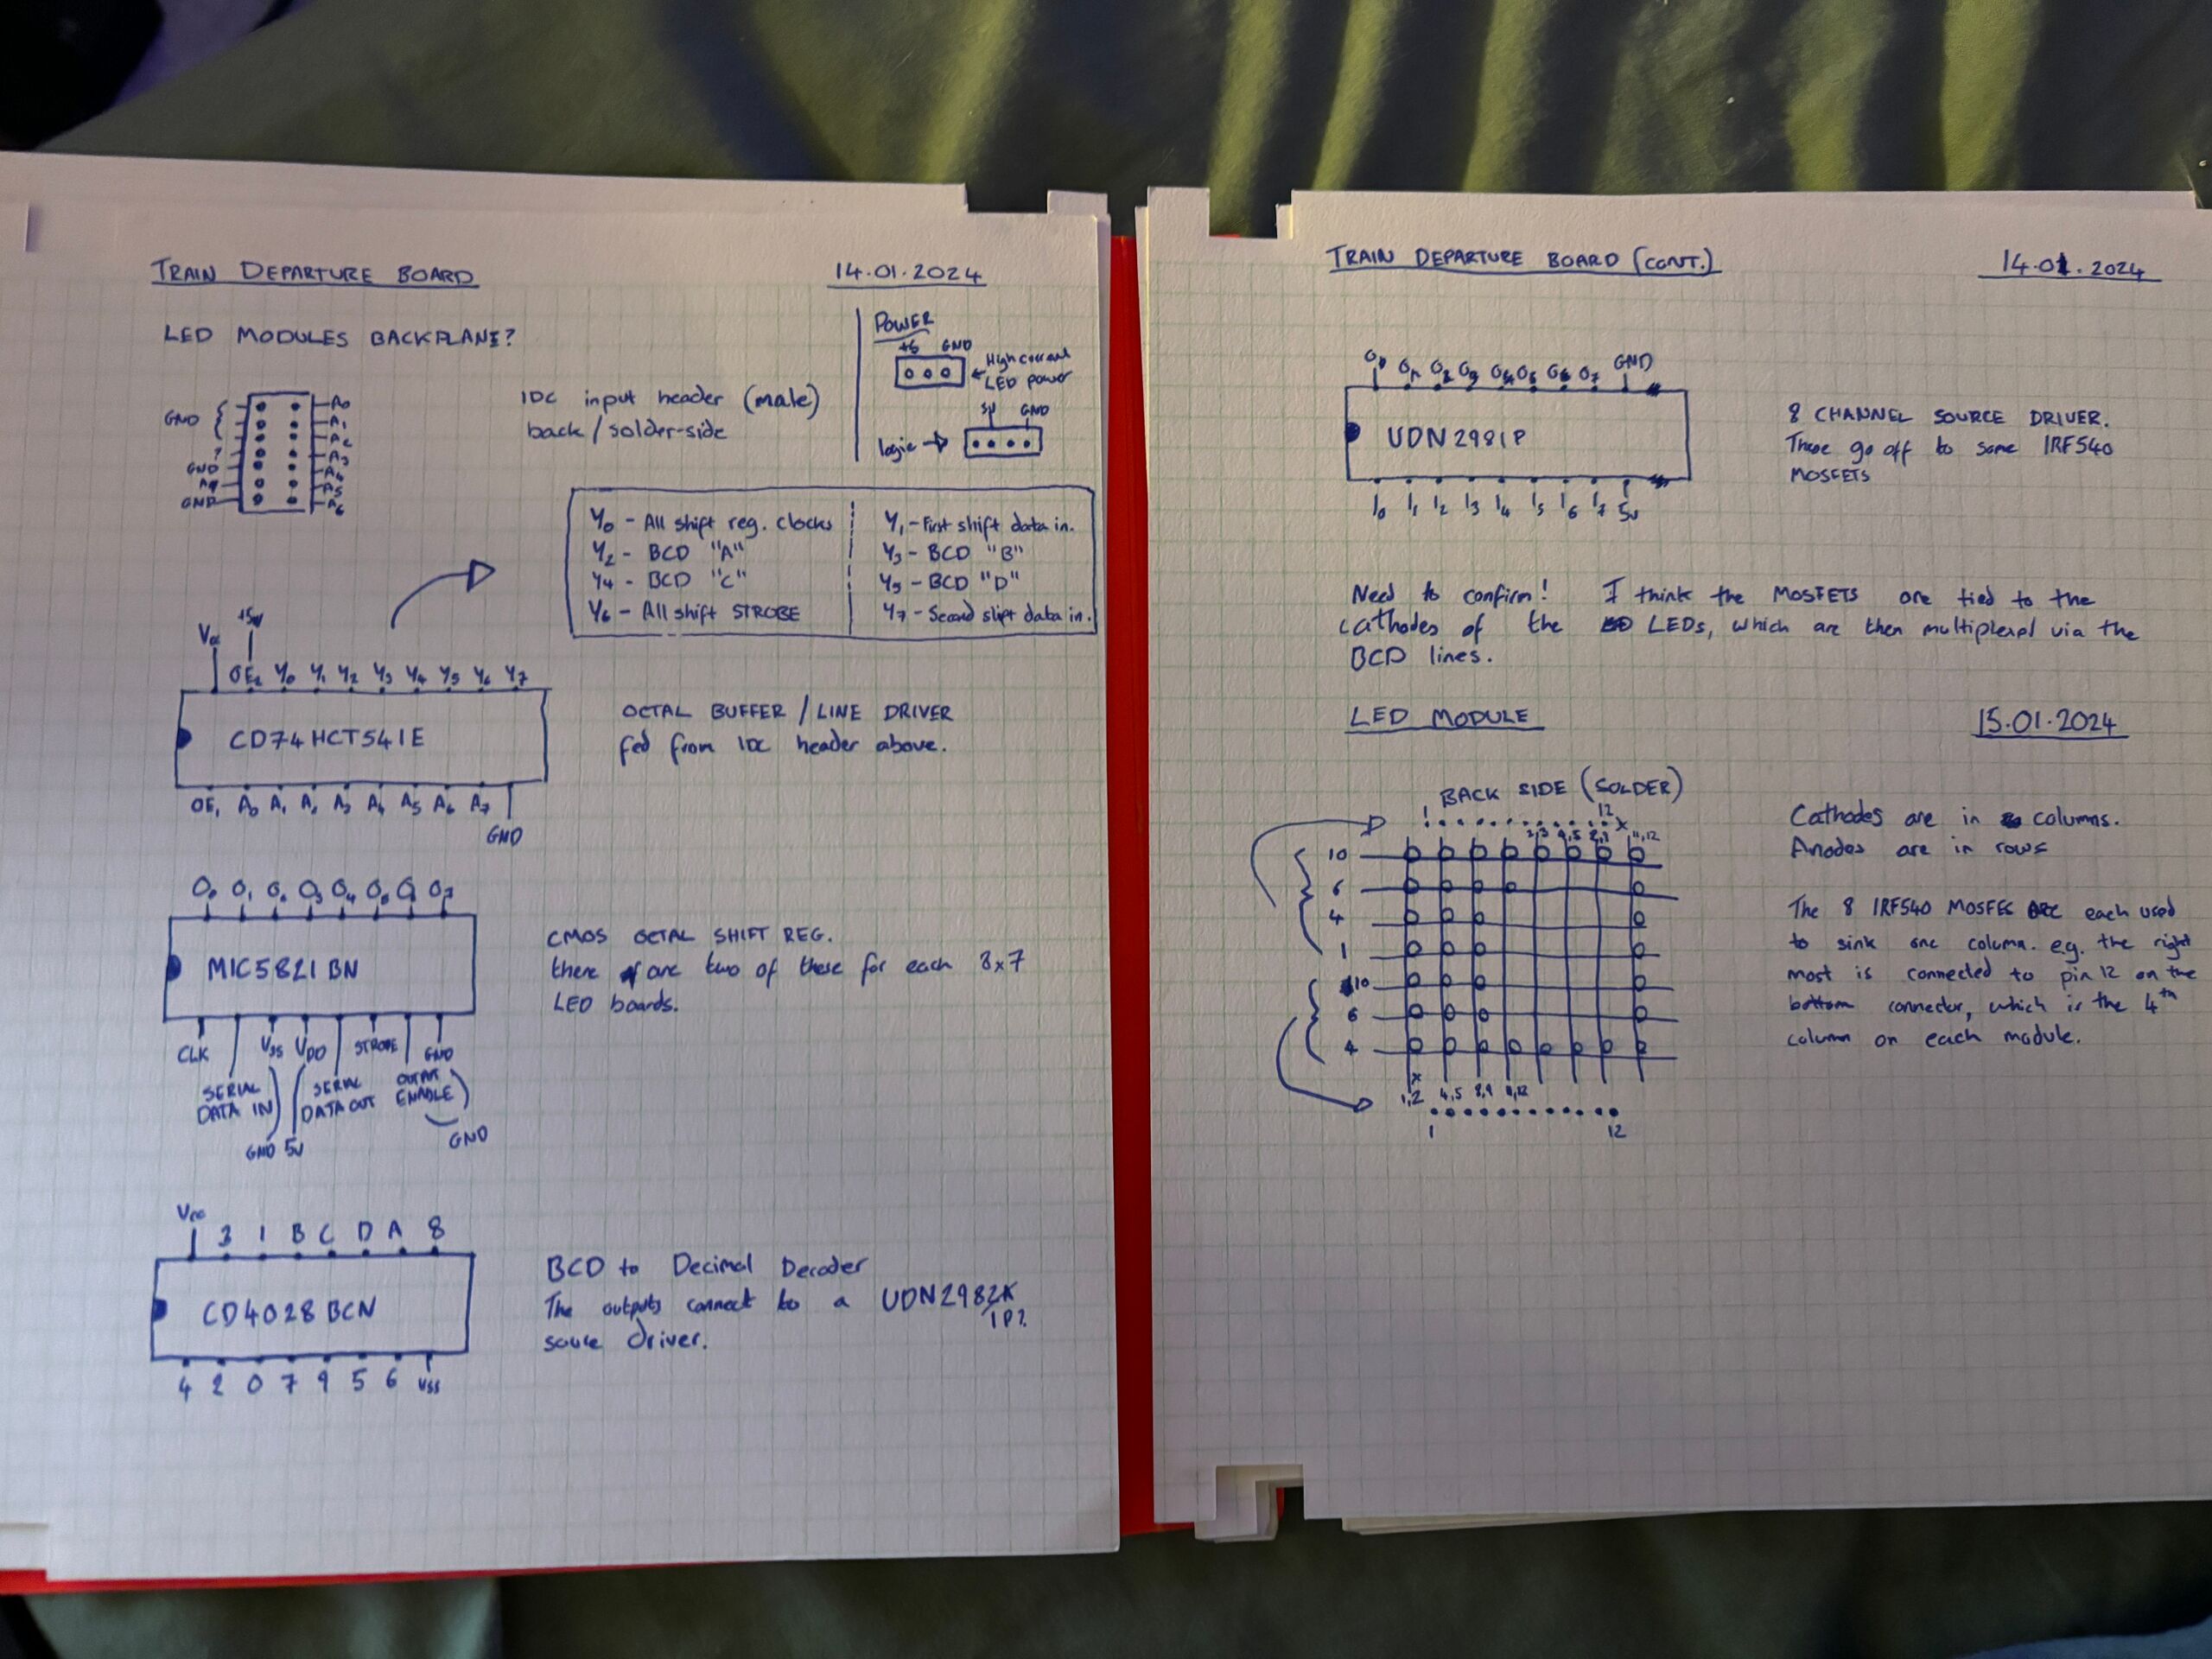 TRAIN DEPARTURE BOARD
14.01.2024
LED MODULES BACKPLANE?
POWER
+5 GND
High current
LED power
5V GND
logic
IDC input header (male)
back/solder-side
GND
?
GND
A7
GND
A0
A1
A2
A3
A4
A5
A6
Y0 - All shift reg. clocks
Y1 - First shift data in.
Y2 - BCD "A"
Y3 - BCD "B"
Y4 - BCD "C"
Y5 - BCD "D"
Y6 - All shift STROBE
Y7 - Second shift data in.
+5V
Vcc
OE2 Y0 Y1 Y2 Y3 Y4 Y5 Y6 Y7
CD74HCT541E
OE1 A0 A1 A2 A3 A4 A5 A6 A7
GND
OCTAL BUFFER / LINE DRIVER
fed from IDC header above.
MIC5821BN
CLK
VSS VDD
STROBE
GND
SERIAL
DATA IN
SERIAL
DATA OUT
OUTPUT
ENABLE
GND 5V
GND
CMOS OCTAL SHIFT REG.
there are two of these for each 8x7
LED boards.
Vcc 3 1 B C D A 8
CD4028BCN
4 2 0 7 9 5 6 VSS
BCD to Decimal Decoder
The outputs connect to a UDN2982
1P?
source driver.
TRAIN DEPARTURE BOARD (CONT.)
14.01.2024
GND
UDN2981P
I0 I1 I2 I3 I4 I5 I6 I7 5V
8 CHANNEL SOURCE DRIVER.
These go off to some IRF540
MOSFETS
Need to confirm! I think the MOSFETS are tied to the
cathodes of the LEDs, which are then multiplexed via the
BCD lines.
LED MODULE
15.01.2024
BACK SIDE (SOLDER)
1
12
x
2,3 4,5
11,12
10
6
4
1
10
6
4
x
1,2 4,5 8,9 11,12
1
12
Cathodes are in columns.
Anodes are in rows
The 8 IRF540 MOSFES are each used
to sink one column. eg. the right
most is connected to pin 12 on the
bottom connector, which is the 4th
column on each module.